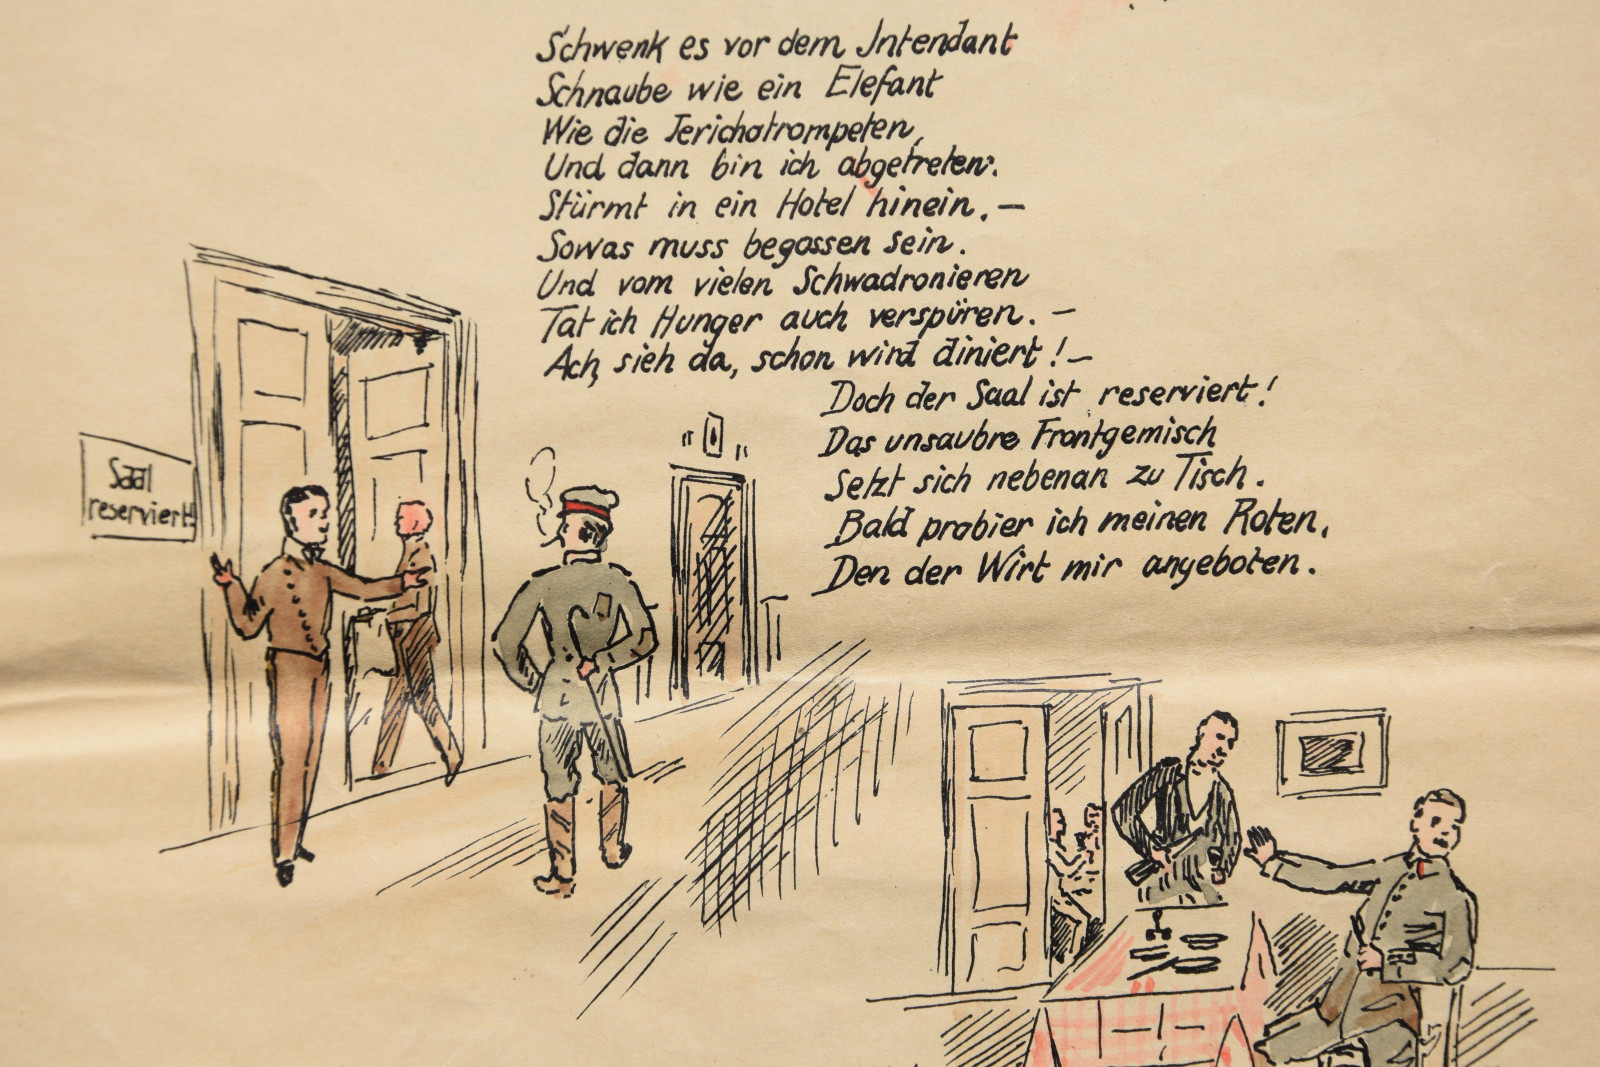 Schwenk es vor dem Intendant
Schnaube wie ein Elefant
Wie die Jerichotrompeten,
Und dann bin ich abgetreten.
Stürmt in ein Hotel hinein. —
Sowas muss begossen sein.
Und vom vielen Schwadronieren
Tat ich Hunger auch verspüren. —
Ach, sieh da, schon wird diniert! —
Doch der Saal ist reserviert!
Das unsaubre Frontgemisch
Setzt sich nebenan zu Tisch.
Bald probier ich meinen Roten,
Den der Wirt mir angeboten.
Saal
reserviert!